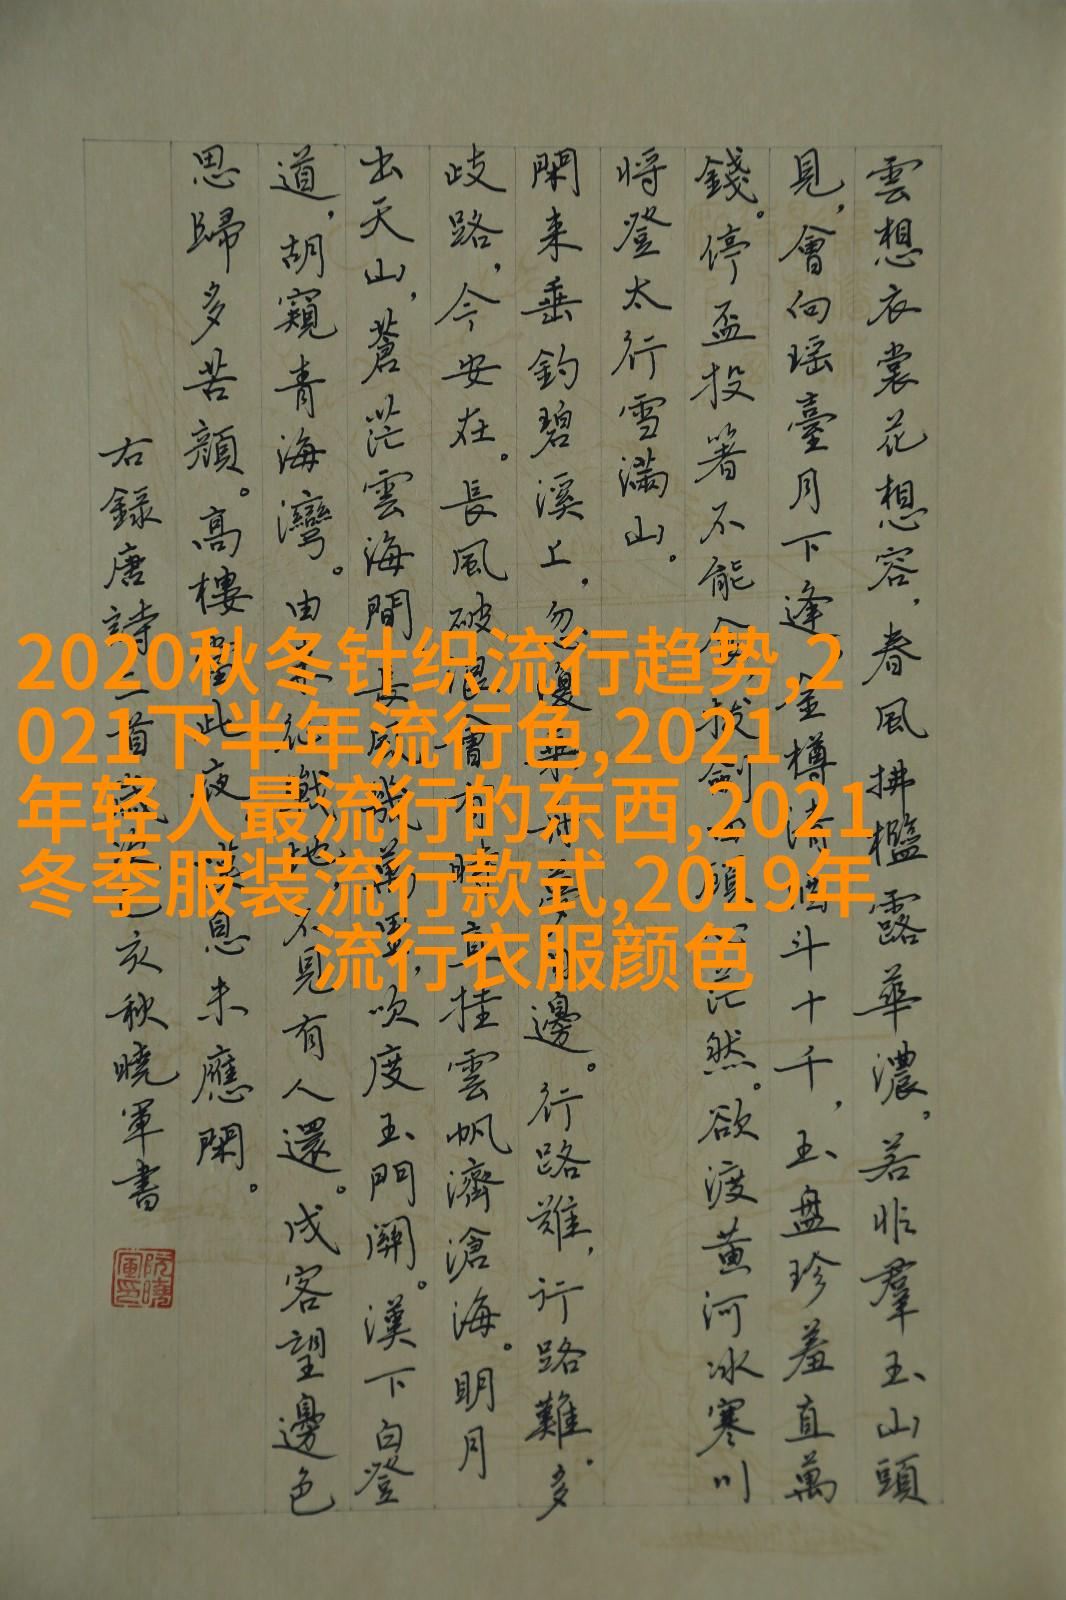 雲想衣裳花想容，春風拂檻露華濃。若非羣玉山頭
見，會向瑶臺月下逢。金樽清酒斗十千，玉盤珍羞直萬
錢。停盃投箸不能食，拔劍四顧茫然。欲渡黄河冰寒川
将登太行雪滿山。
閑来垂釣碧溪上，忽復乘舟夢日邊。行路難，行路難。多
歧路，今安在。長風破浪會有時，直挂雲帆濟滄海。明月
出天山，蒼茫雲海間。長風幾萬里，吹度玉門關。漢下白登
道，胡窺青海灣。由征戰地，不見有人還。戍客望邊色
思歸多苦顔。高樓當此夜，息未應閑。
右録唐詩首亥秋曉軍書
阮曉軍印
2020秋冬针织流行趋势,2
021下半年流行色,2021
年轻人最流行的东西,2021
冬季服装流行款式,2019年
流行衣服颜色